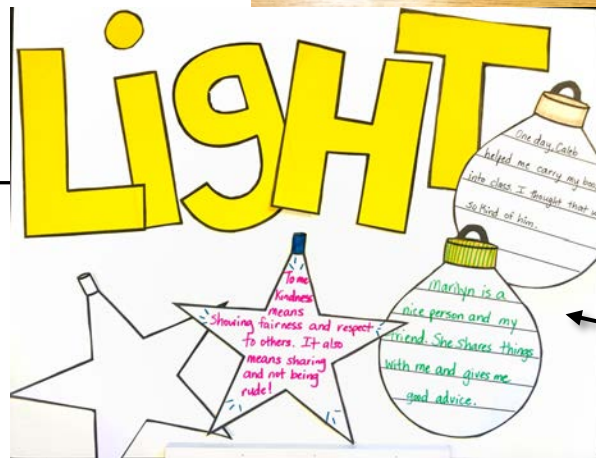 LiGHT
One day, Caleb
helped me carry my
into class. I thought that
so kind of him.
To me
Kindness
means
showing fairness and respect
to others. It also
means sharing
and not being
rude!
Marilyn is a
nice person and my
friend. She shares things
with me and gives me
good advice.